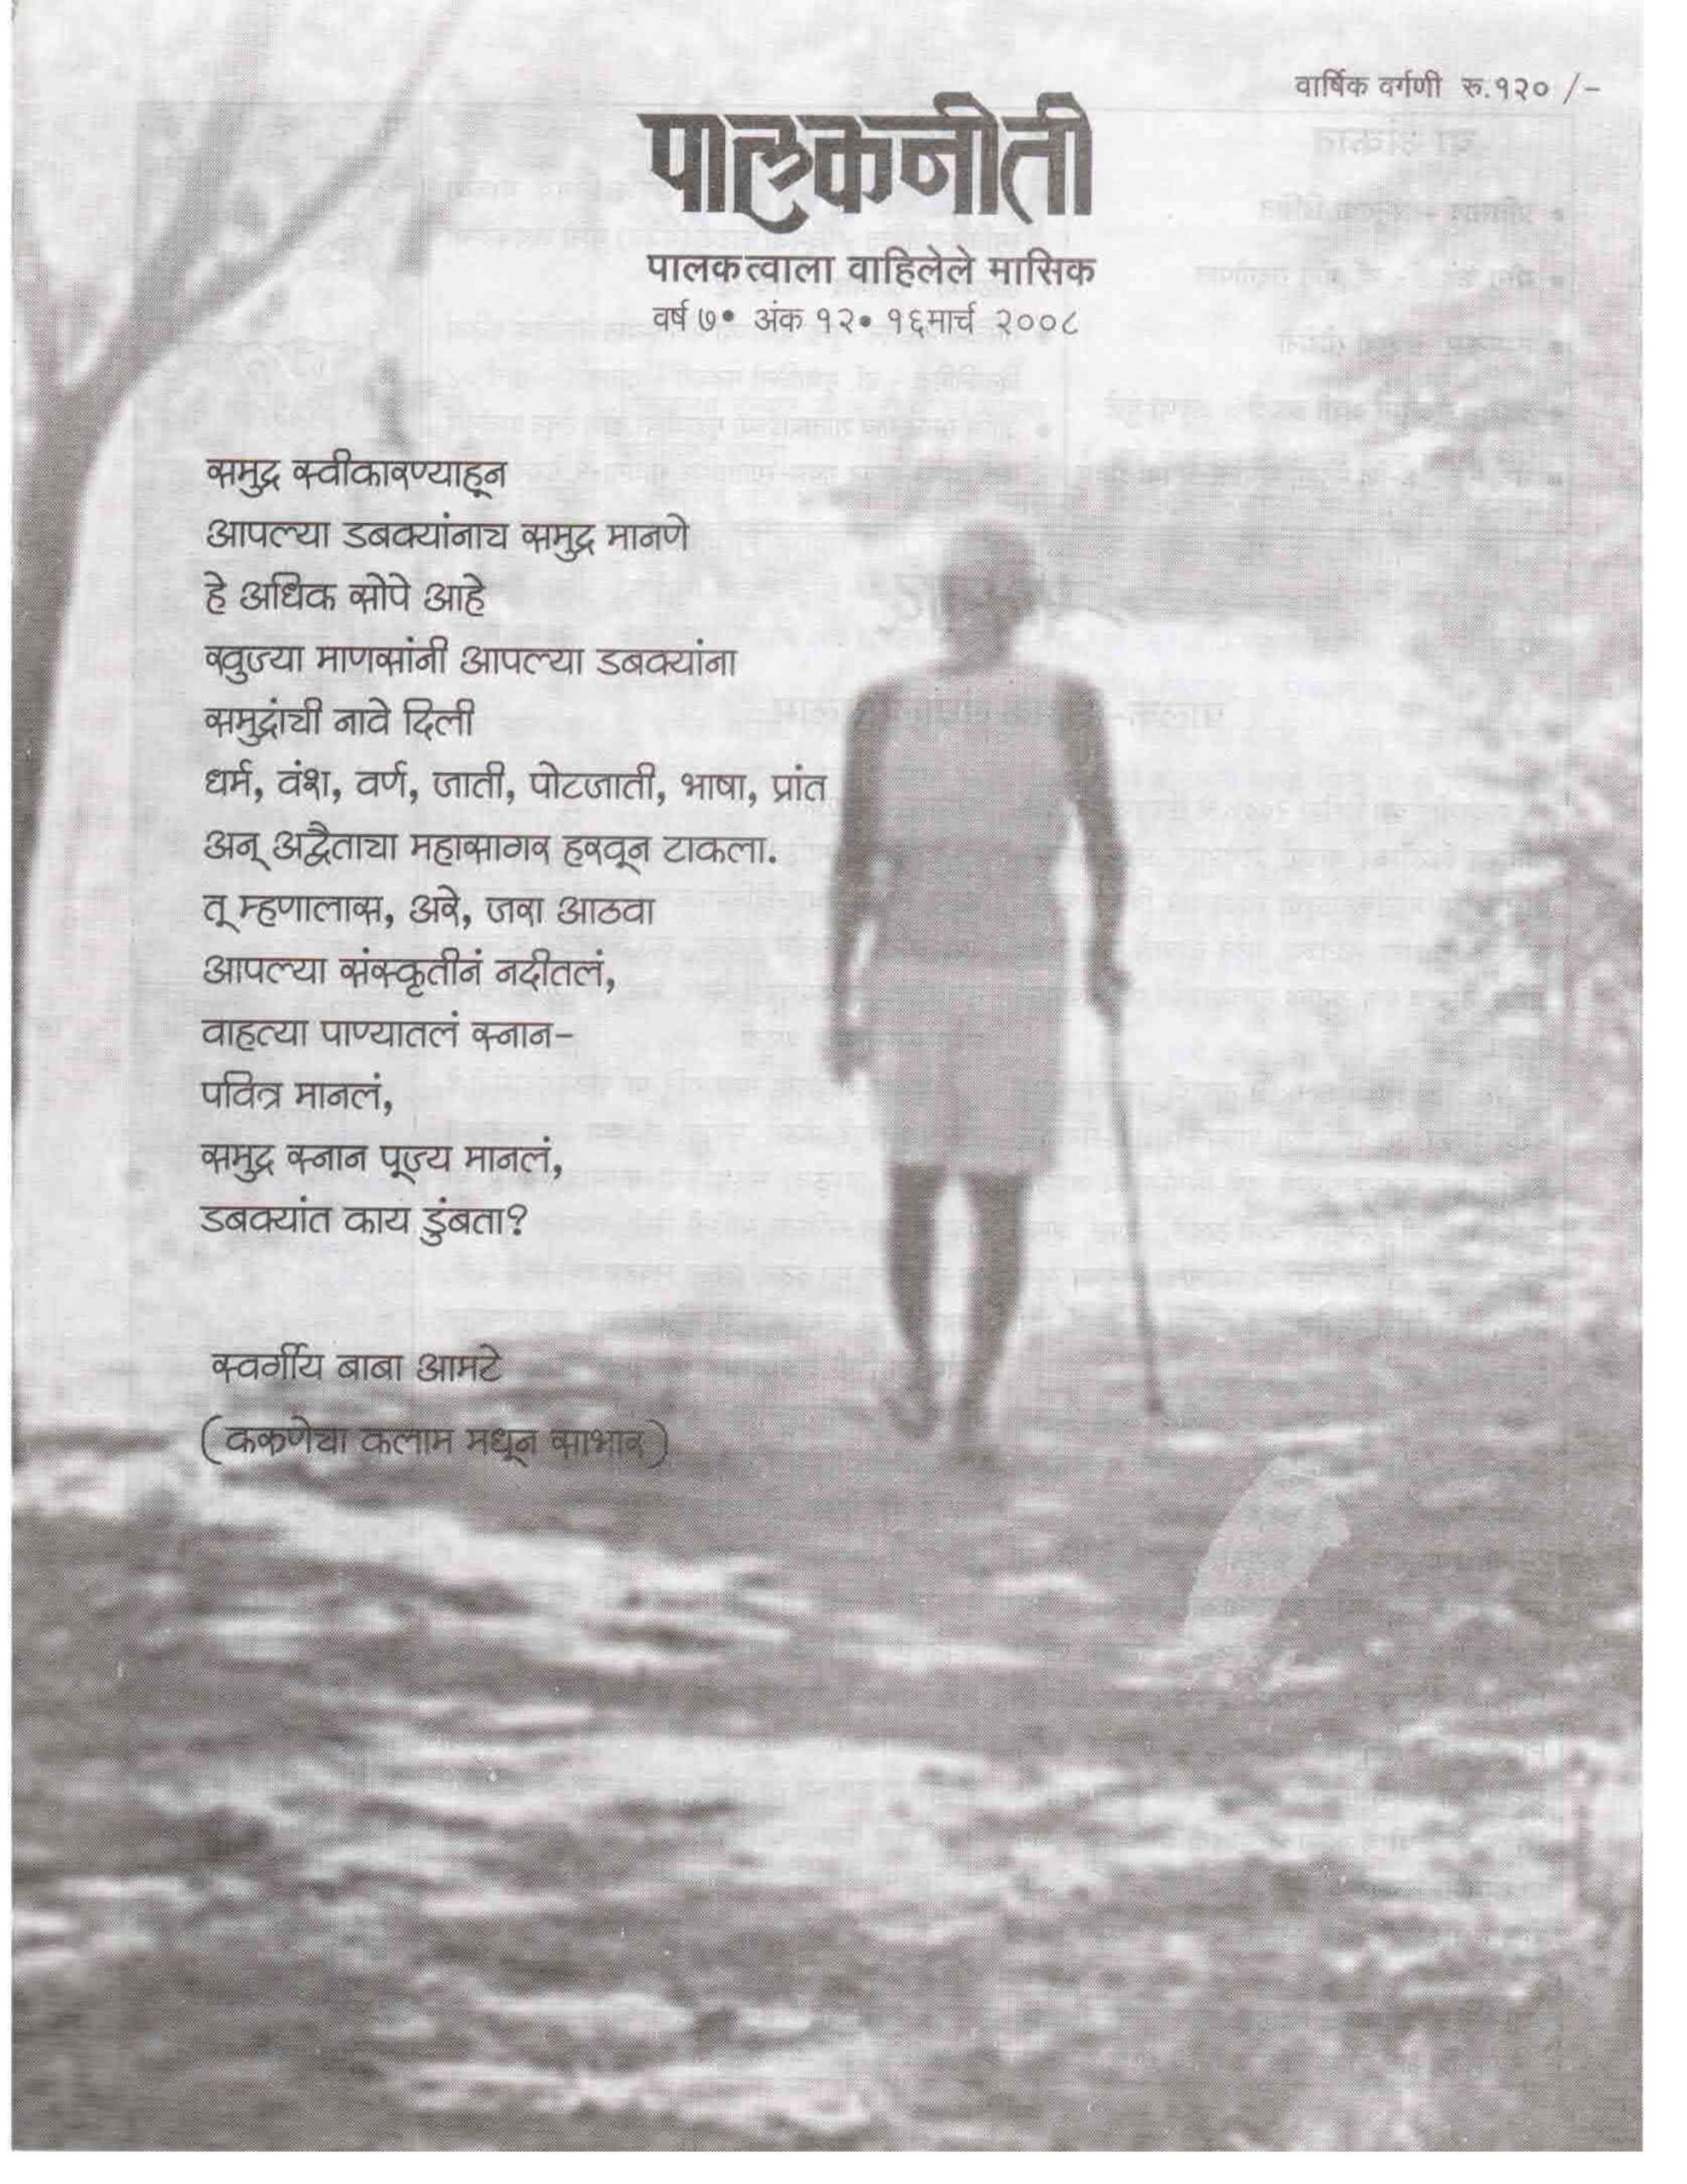 वार्षिक वर्गणी रु.१२० /-
पालकनीती
पालकत्वाला वाहिलेले मासिक
वर्ष ७• अंक १२• १६मार्च २००८
समुद्र स्वीकारण्याहून
आपल्या डबक्यांनाच समुद्र मानणे
हे अधिक सोपे आहे
खुज्या माणसांनी आपल्या डबक्यांना
समुद्रांची नावे दिली
धर्म, वंश, वर्ण, जाती, पोटजाती, भाषा, प्रांत
अन् अद्वैताचा महासागर हरवून टाकला.
तू म्हणालास, अरे, जरा आठवा
आपल्या संस्कृतीनं नदीतलं,
वाहत्या पाण्यातलं स्नान-
पवित्र मानलं,
समुद्र स्नान पूज्य मानलं,
डबक्यांत काय डुंबता?
स्वर्गीय बाबा आमटे
(करुणेचा कलाम मधून साभार)